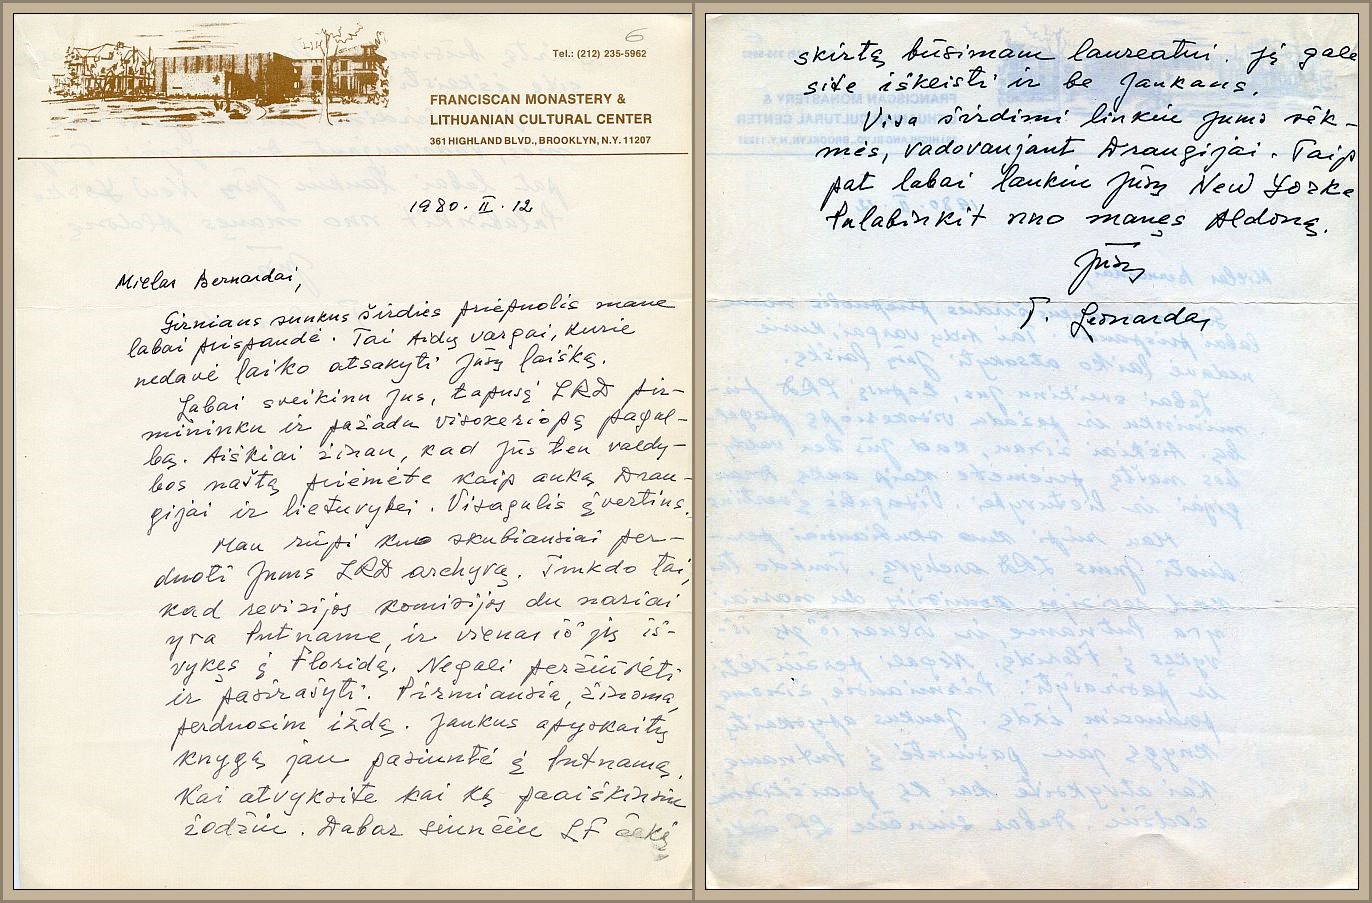 6
Tel.: (212) 235-5962
FRANCISCAN MONASTERY &
LITHUANIAN CULTURAL CENTER
361 HIGHLAND BLVD., BROOKLYN, N.Y. 11207
1980. II. 12
Mielas Bernardai,
Girniaus sunkus širdies priepuolis mane
labai prispaudė. Tai Aidų vargai, kurie
nedavė laiko atsakyti Jūsų laišką.
Labai sveikinu Jus, tapusį LRD pir-
mininku ir pažadu visokeriopą pagal-
bą. Aiškiai žinau, kad Jūs ten valdy-
bos naštą priėmėte kaip auką Drau-
gijai ir lietuvybei. Visagalis įvertins.
Man rūpi kuo skubiausiai per-
duoti Jums LRD archyvą. Trukdo tai,
kad revizijos komisijos du nariai
yra Putname, ir vienas iš jų iš-
vykęs į Floridą. Negali peržiūrėti
ir pasirašyti. Pirmiausia, žinoma,
perduosim iždą. Jankus apyskaitų
knygą jau pasiuntė į Putnamą.
Kai atvyksite kai ką paaiškinsiu
žodžiu. Dabar siunčiu LF čekį
skirtą būsimam laureatui. Jį galė
site iškeisti ir be Jankaus.
Visa širdimi linkiu Jums sėk-
mės, vadovaujant Draugijai. Taip
pat labai laukiu Jūsų New Yorke
Palabinkit nuo manęs Aldoną.
Jūsų
T. Leonardas